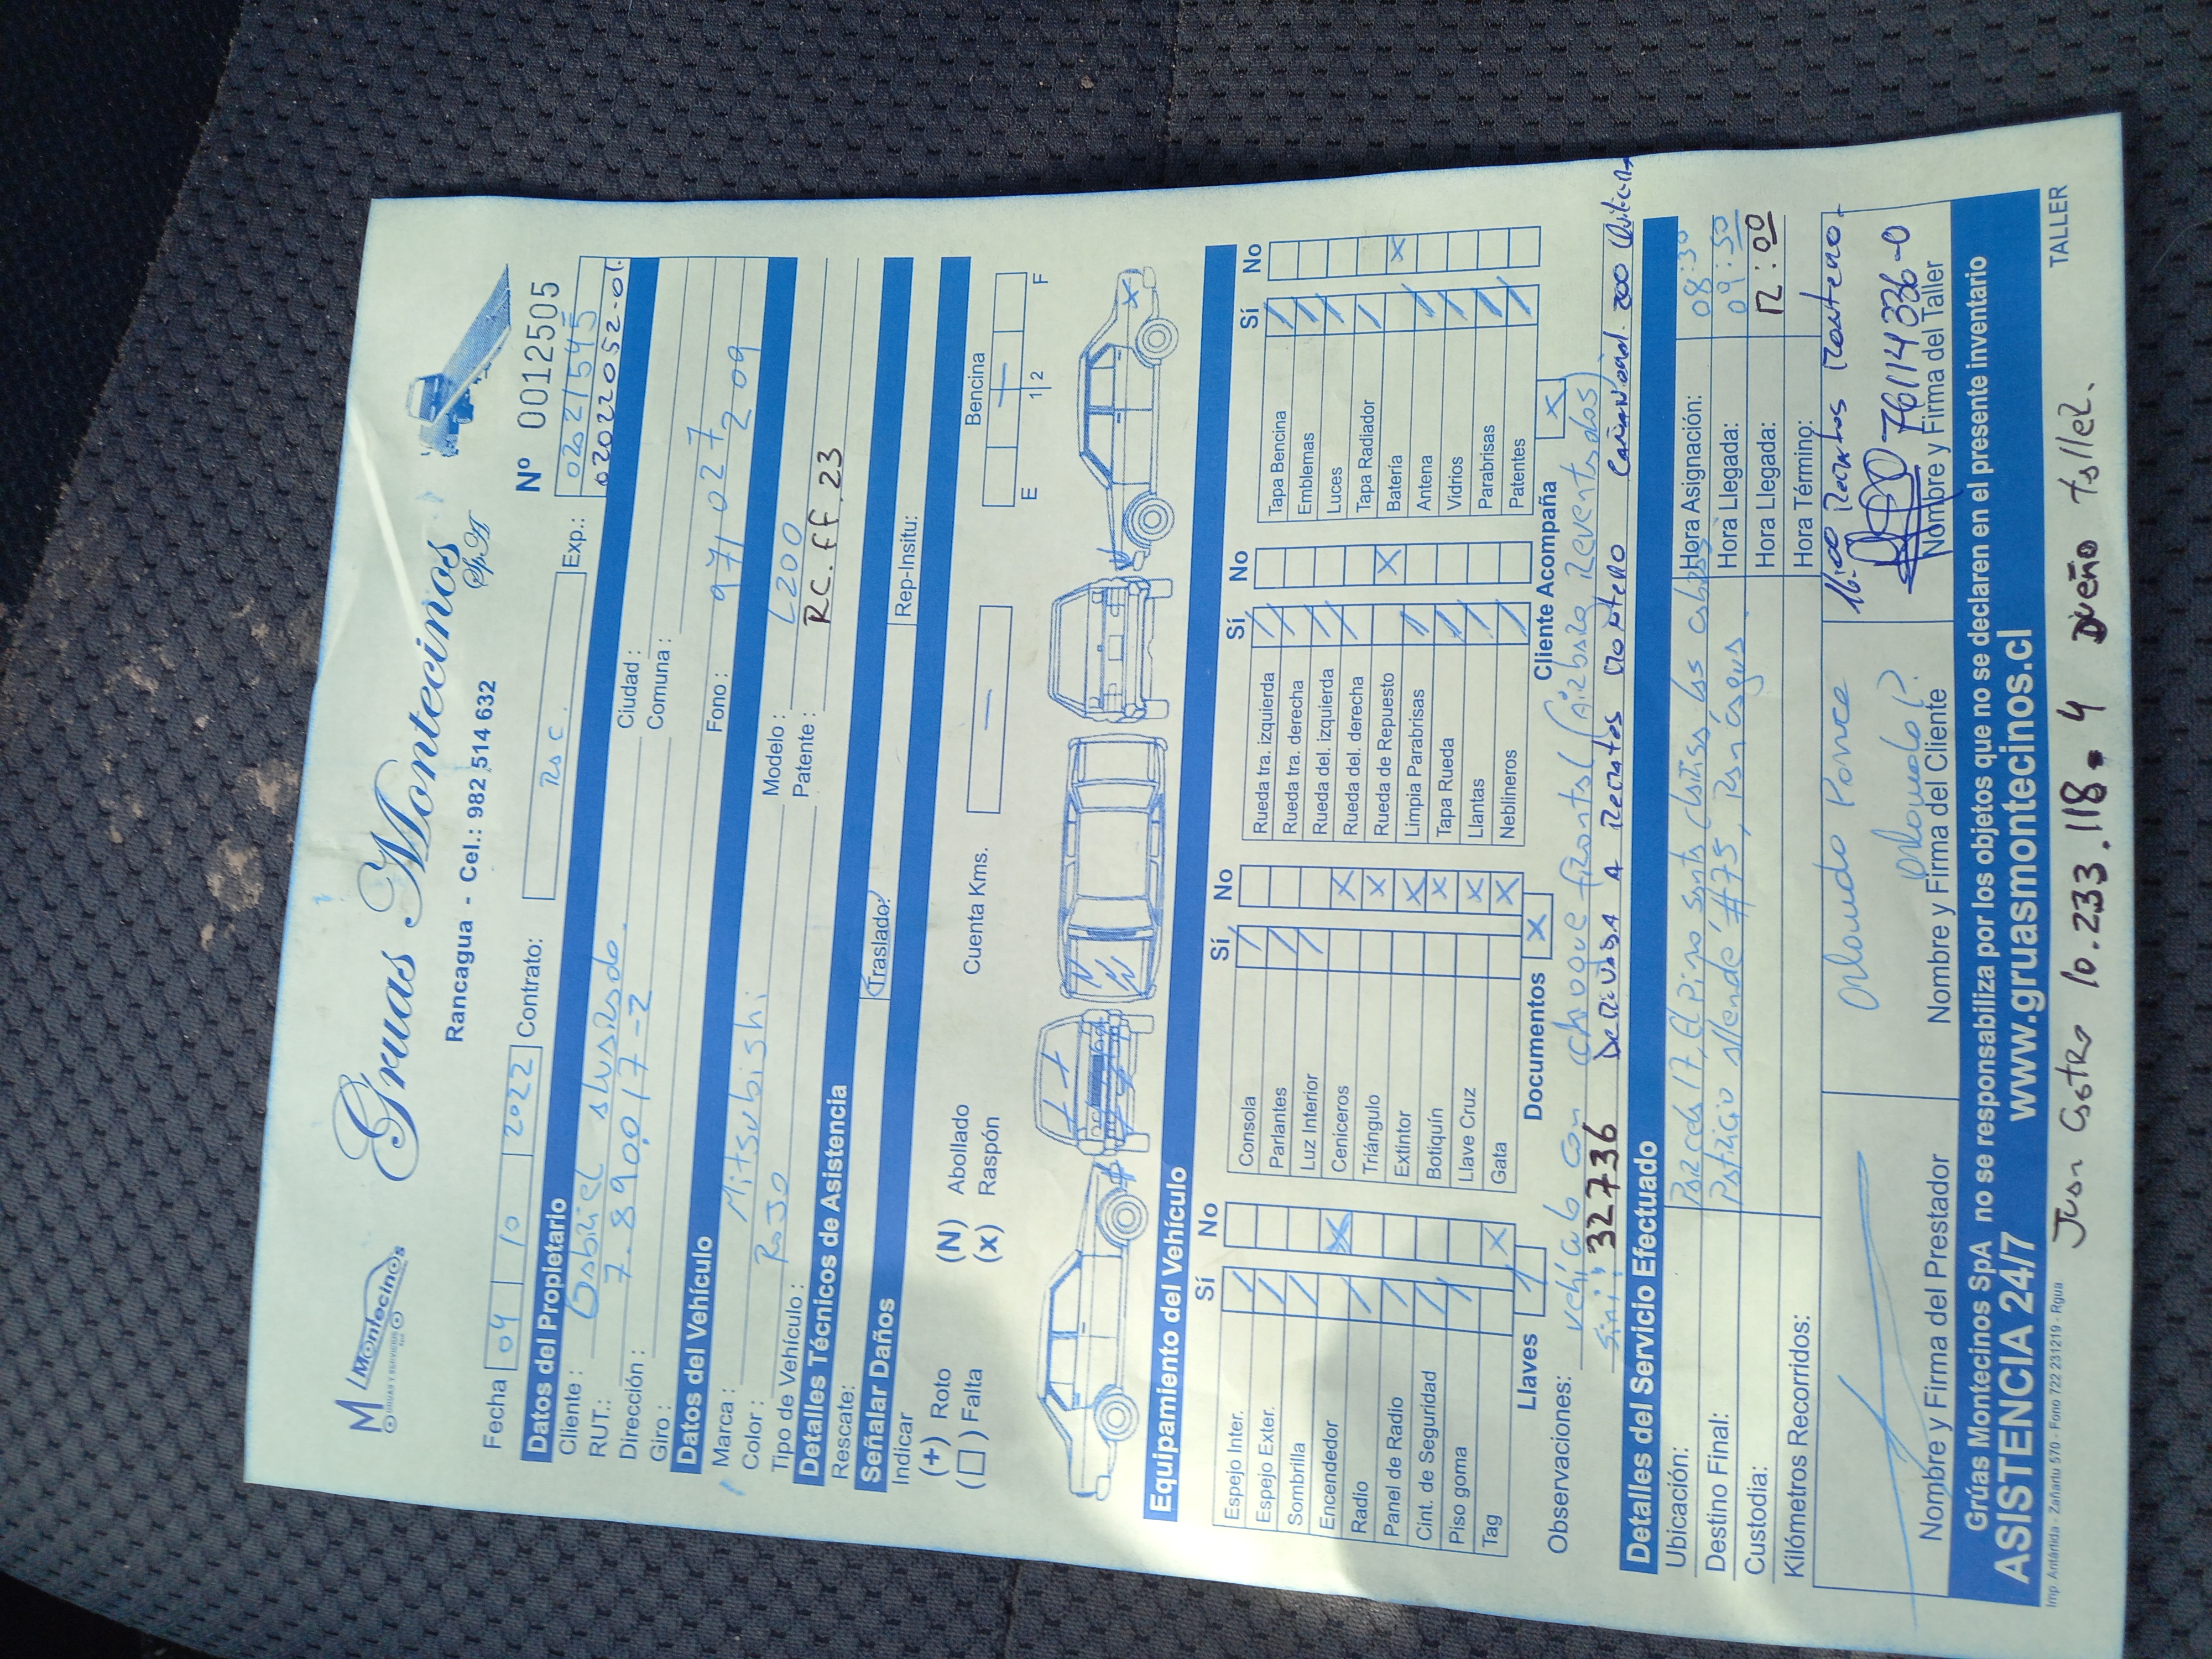 M Montecinos
GRUAS Y SERVICIOS
Gruas Montecinos
SpA
Rancagua - Cel.: 982 514 632
Nº 0012505
Fecha 04 10 2022 Contrato: RSC. Exp.: 0202/1545
02022052-01
Datos del Propietario
Cliente: Gabriel Alvarado.
RUT.: 7.890.017-2
Dirección: Ciudad:
Giro: Comuna:
Datos del Vehículo Fono: 971 027 209
Marca: Mitsubishi Modelo: L200
Color: Rojo Patente: RC.FF.23
Tipo de Vehículo:
Detalles Técnicos de Asistencia
Rescate: Traslado: Rep-Insitu:
Señalar Daños
Indicar
(+) Roto (N) Abollado Cuenta Kms. — Bencina
(□) Falta (x) Raspón E 1|2 F
Equipamiento del Vehículo
Sí No Sí No Sí No Sí No
Espejo Inter. / Consola / Rueda tra. izquierda / Tapa Bencina /
Espejo Exter. / Parlantes / Rueda tra. derecha / Emblemas /
Sombrilla / Luz Interior / Rueda del. izquierda / Luces /
Encendedor X Ceniceros X Rueda del. derecha / Tapa Radiador /
Radio / Triángulo X Rueda de Repuesto X Batería X
Panel de Radio / Extintor X Limpia Parabrisas / Antena /
Cint. de Seguridad / Botiquín X Tapa Rueda / Vidrios /
Piso goma / Llave Cruz X Llantas / Parabrisas /
Tag X Gata X Neblineros / Patentes /
Llaves 1 Documentos X Cliente Acompaña X
Observaciones: vehículo con choque frontal (Airbag Reventados)
Sini: 32736 Derivada A Recratos Montero Cañaveral 200
Detalles del Servicio Efectuado
Ubicación: Parcela 17, El Pino Santa Clotilde las cabras Hora Asignación: 08:30
Destino Final: Patricio Allende #75, Rancagua. Hora Llegada: 09:50
Custodia: Hora Llegada: 12:00
Kilómetros Recorridos: Hora Término:
16:00 Recratos Montero.
Orlando Ponce
Orlando P. 76114336-0
Nombre y Firma del Prestador Nombre y Firma del Cliente Nombre y Firma del Taller
Grúas Montecinos SpA no se responsabiliza por los objetos que no se declaren en el presente inventario
ASISTENCIA 24/7 www.gruasmontecinos.cl
Imp. Antártida - Zañartu 570 - Fono 722 231219 - Rgua TALLER
Juan Castro 10.233.118-4 Dueño taller.